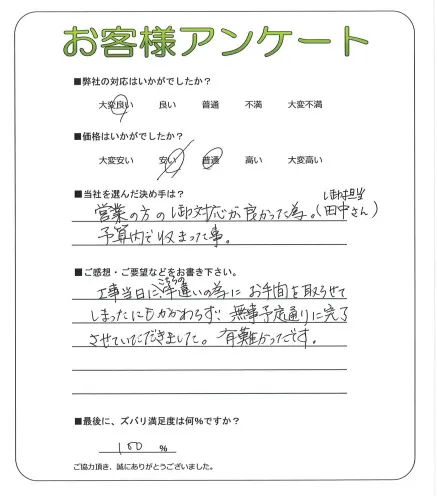 お客様アンケート
■弊社の対応はいかがでしたか?
大変良い 良い 普通 不満 大変不満
■価格はいかがでしたか?
大変安い 安い 普通 高い 大変高い
■当社を選んだ決め手は?
御担当
営業の方の御対応が良かった為。(田中さん)
予算内で収まった事。
■ご感想・ご要望などをお書き下さい。
こちらの
工事当日に、手違いの為に お手間を取らせて
しまったにもかかわらず、無事予定通りに完了
させていただきました。有難かったです。
■最後に、ズバリ満足度は何%ですか?
100 %
ご協力頂き、誠にありがとうございました。